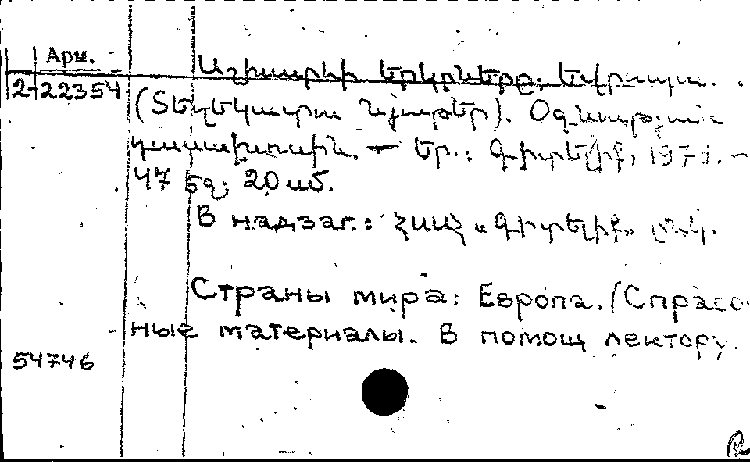 Арм.
2-22354
Աշխարհի երկրները. Եվրոպա.
(Տեղեկատու նյութեր). Օգնություն
դասախոսին. — Եր.: Գիտելիք, 197
47 էջ; 20 սմ.
В надзаг.: ՀՍՍՀ «Գիտելիք» ընկ.
Страны мира: Европа. (Справоч-
ные материалы. В помощ лектору.
54746